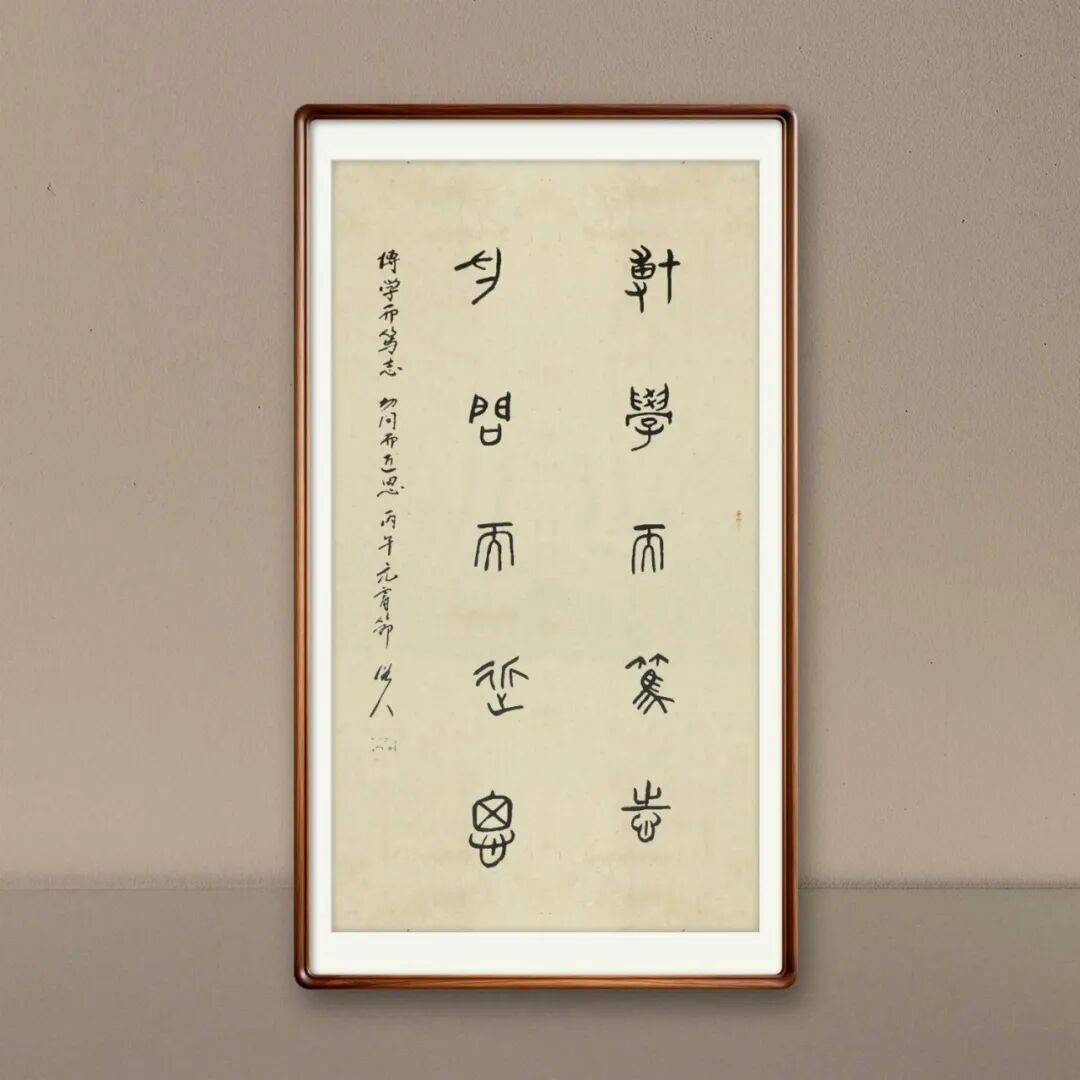 博學而篤志
切問而近思
博学而笃志 切问而近思 丙午元宵節